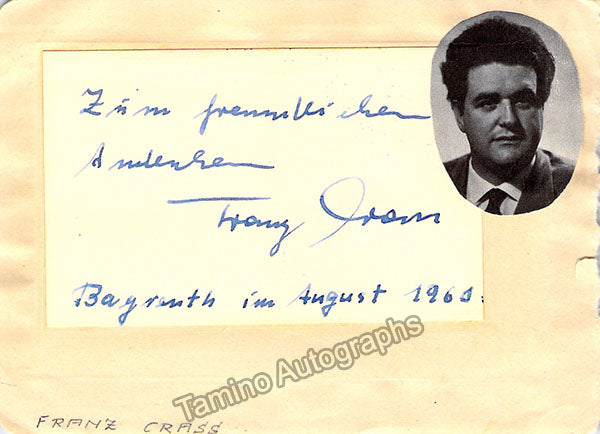 Zum freundlichen
Andenken
Franz Crass
Bayreuth im August 1960.
Tamino Autographs
FRANZ CRASS